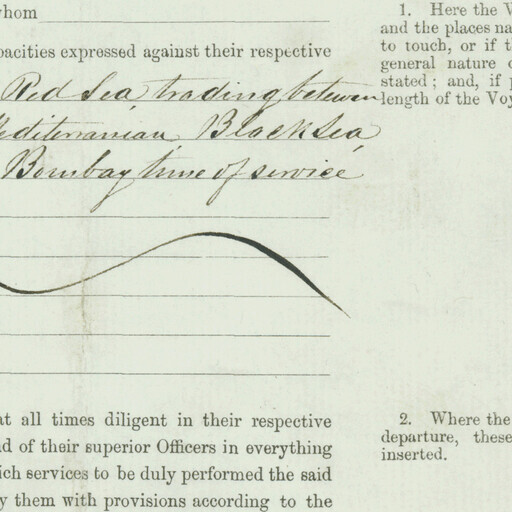 whom
pacities expressed against their respective
Red Sea, trading between
Mediterranian, Black Sea,
Bombay time of service
at all times diligent in their respective
nd of their superior Officers in everything
ich services to be duly performed the said
y them with provisions according to the
1. Here the V
and the places na
to touch, or if t
general nature o
stated; and, if p
length of the Voy
2. Where the
departure, these
inserted.